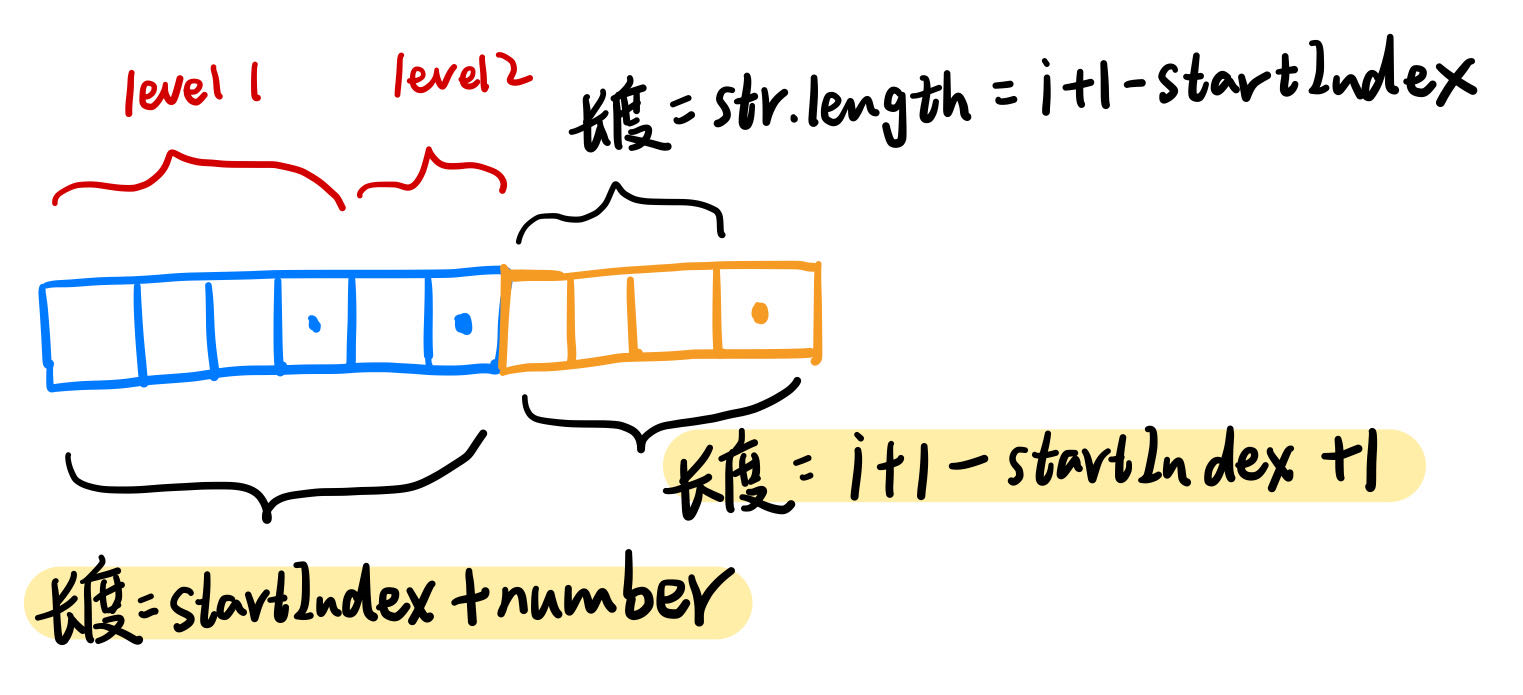 level 1
level2
长度=str.length=i+1-startIndex
长度=i+1-startIndex+1
长度=startIndex+number